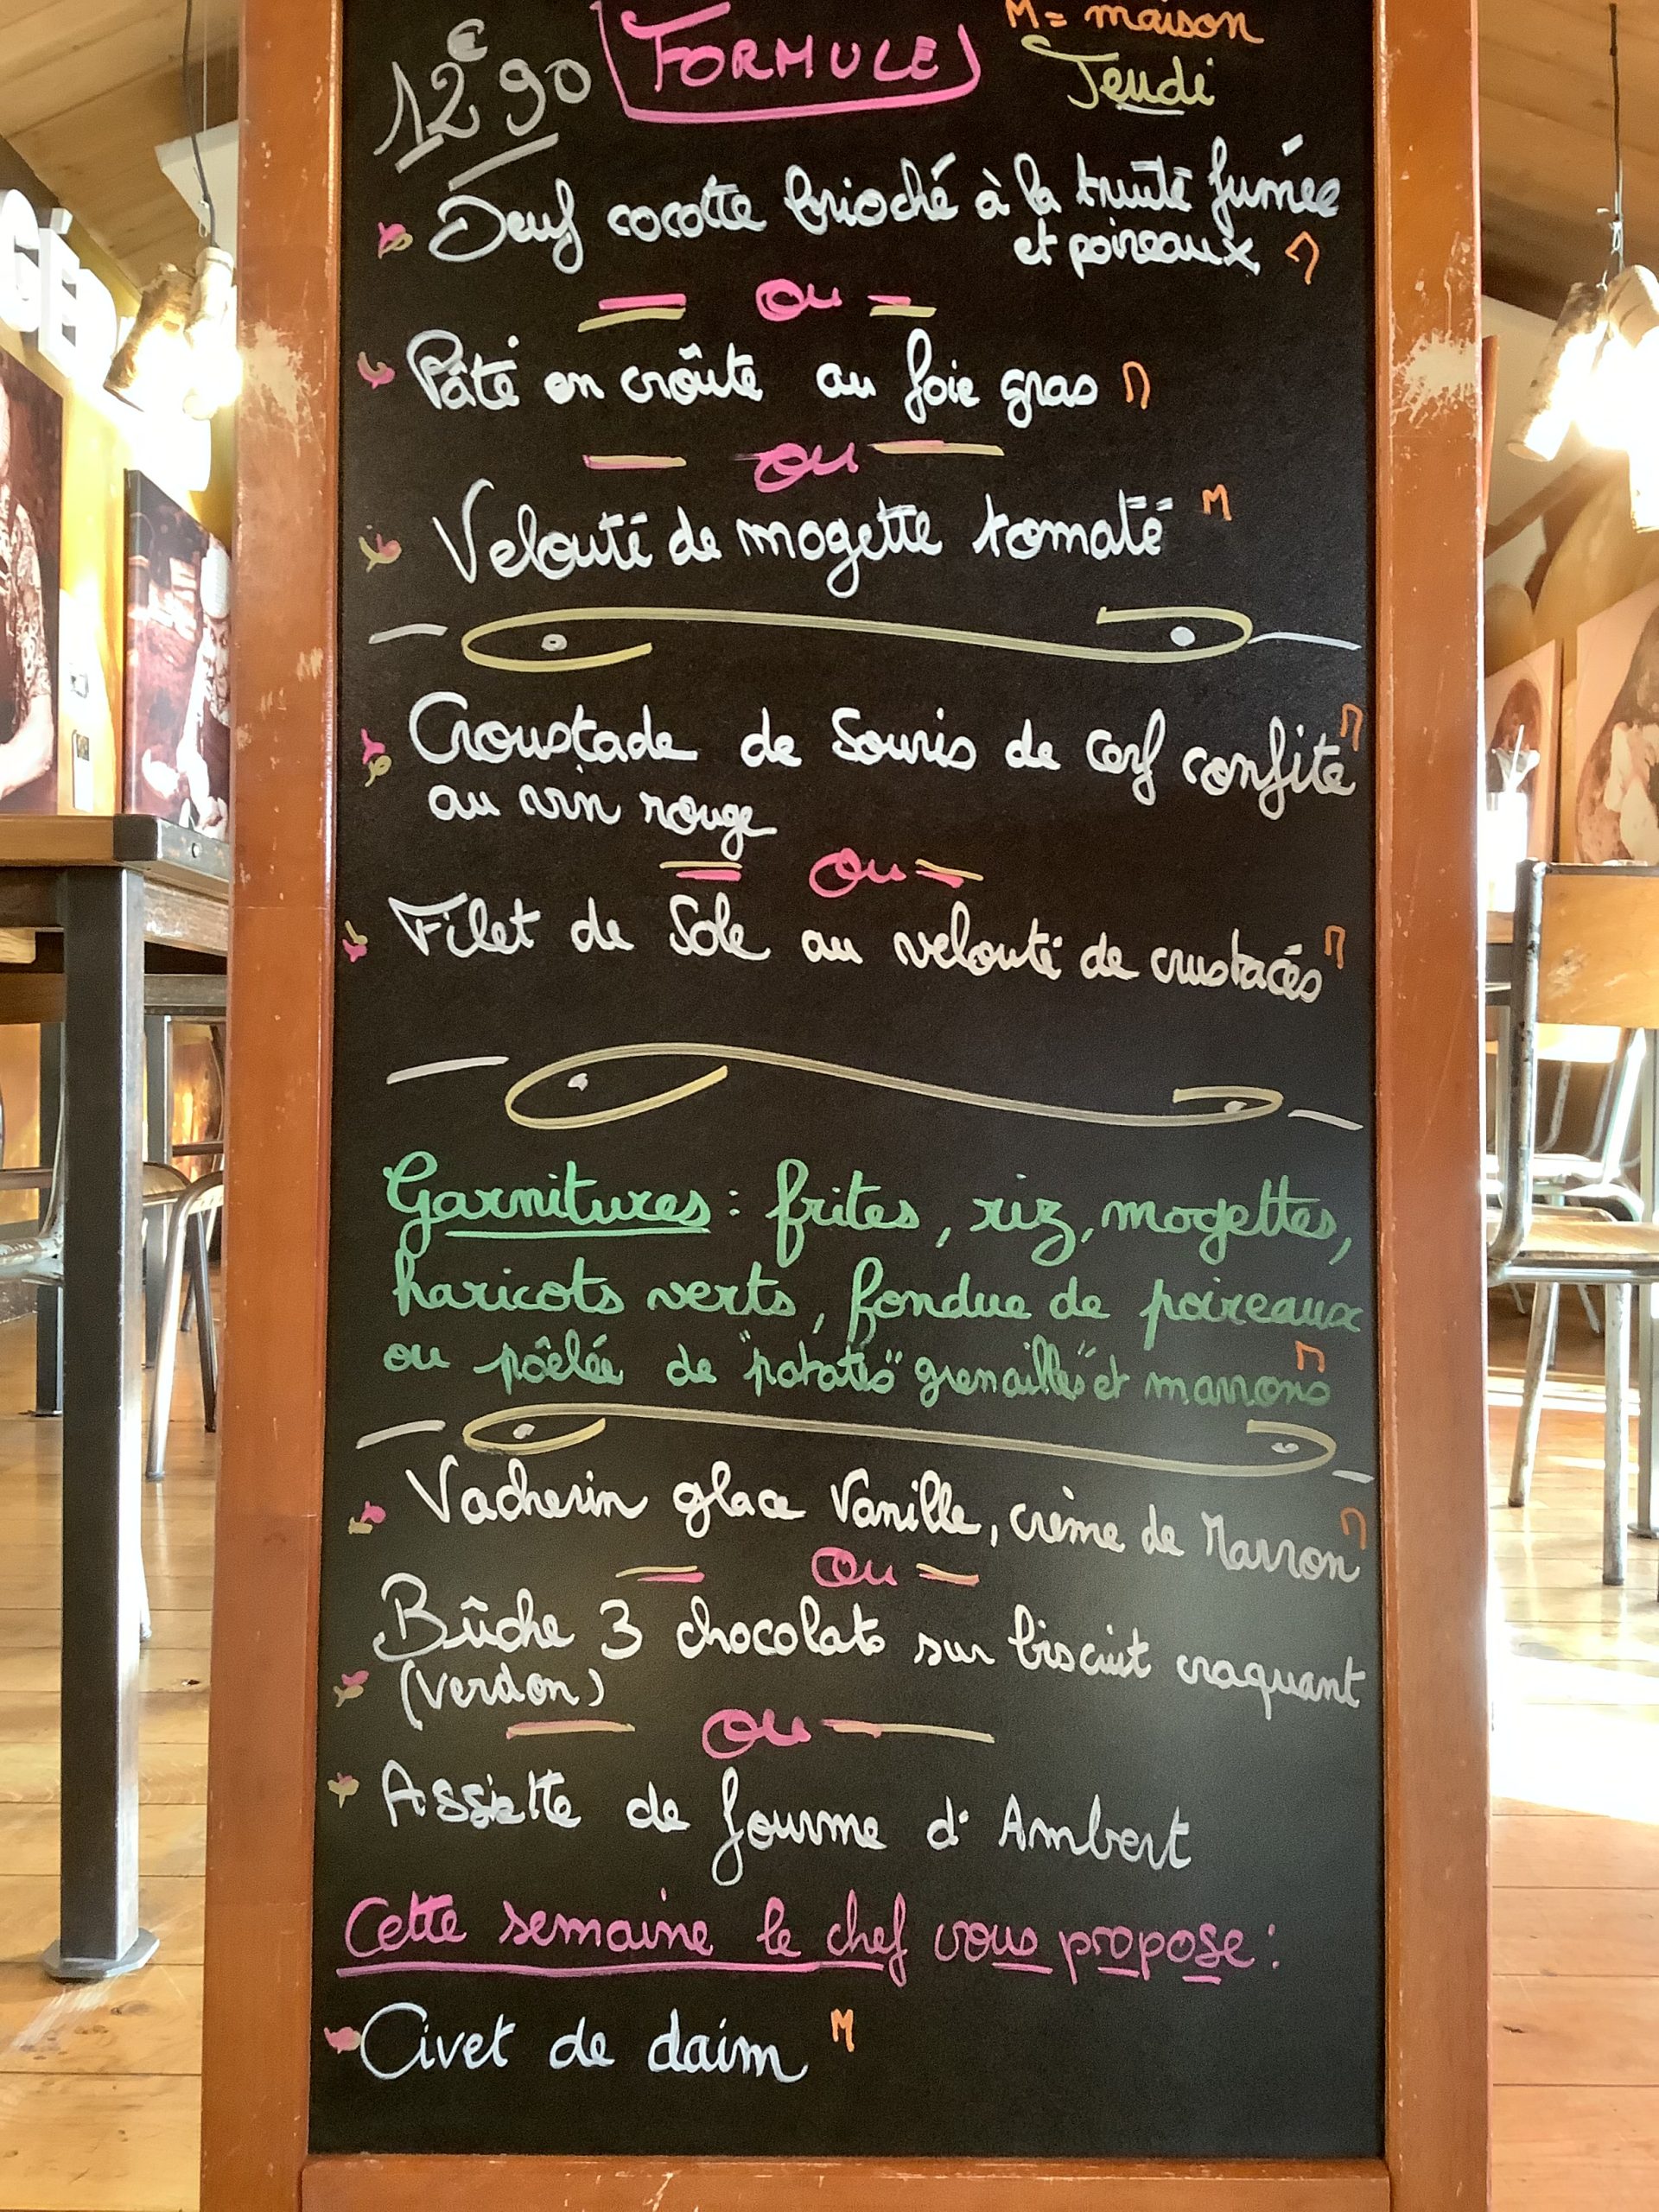 M = maison
12€90 FORMULE Jeudi
Oeuf cocotte brioché à la truite fumée
et poireaux M
ou
Pâté en croûte au foie gras M
ou
Velouté de mogette tomaté M
Croustade de Souris de cerf confite M
au vin rouge
ou
Filet de Sole au velouté de crustacés M
Garnitures : frites, riz, mogettes,
haricots verts, fondue de poireaux
ou pôêlée de "potatos" grenailles" et marrons M
Vacherin glace Vanille, crème de Marron M
ou
Bûche 3 chocolats sur biscuit craquant
(Verdon)
ou
Assiette de fourme d'Ambert
Cette semaine le chef vous propose :
Civet de daim M